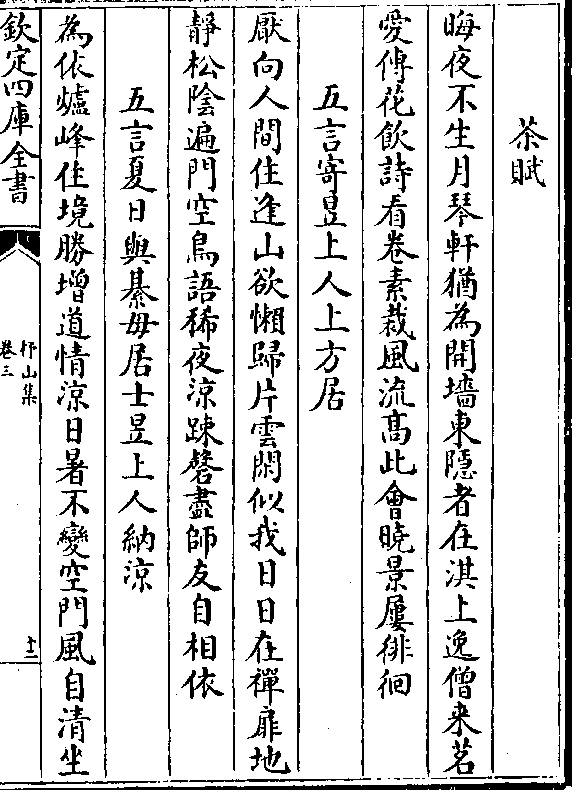 茶賦
晦夜不生月琴軒猶為開墻東隱者在淇上逸僧来茗
愛傳花飲詩看卷素裁風流髙此㑹曉景屢徘徊
五言寄昱上人上方居
厭向人間住逢山欲懶歸片雲閑似我日日在禪扉地
靜松陰遍門空鳥語稀夜涼踈磬盡師友自相依
五言夏日與綦毋居士昱上人納涼
為依爐峰住境勝增道情涼日暑不變空門風自清坐
欽定四庫全書
杼山集
卷三
十二